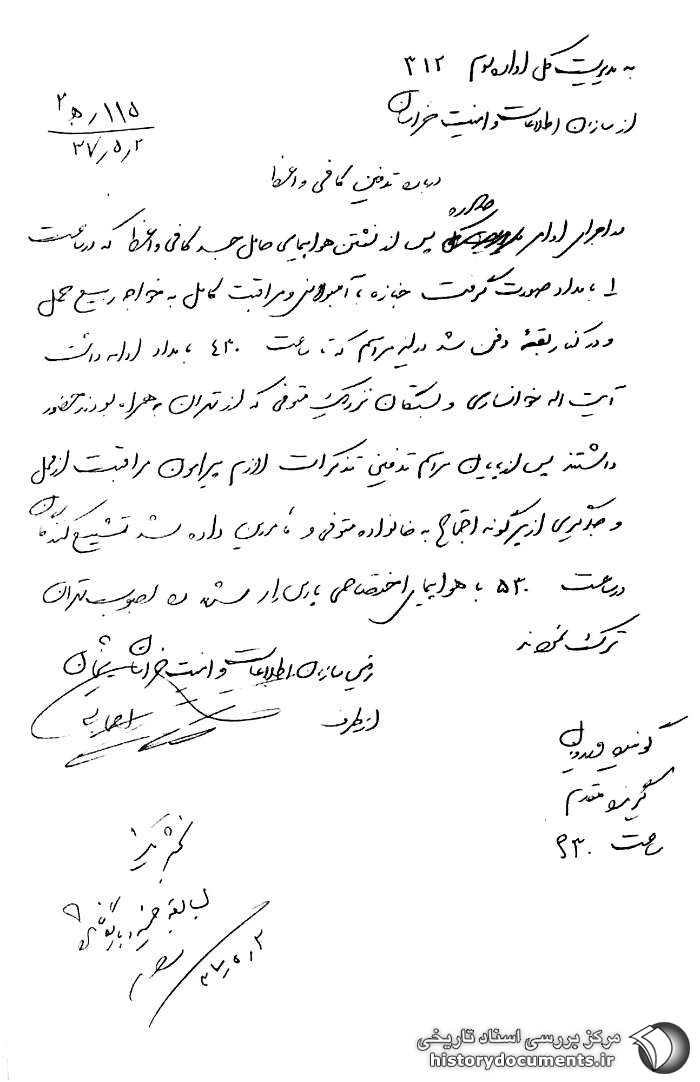 به مدیریت کل اداره سوم ۳۱۲
از سازمان اطلاعات و امنیت خراسان
۱۱۵ر۲ﻫ
۳۷ر۵ر۲
درباره تدفین کافی واعظ
پس از نشستن هواپیمای حامل جسد کافی واعظ که در ساعت
۱ بامداد صورت گرفت جنازه با آمبولانس و مراقبت کامل به خواجه ربیع حمل
و در کنار بقعه دفن شد در این مراسم که تا ساعت ۴۳۰ بامداد ادامه داشت
آیت اله خوانساری و بستگان نزدیک متوفی که از تهران به همراه بودند حضور
داشتند پس از پایان مراسم تدفین تذکرات لازم پیرامون مراقبت از محل
و جلوگیری از هرگونه اجتماع به خانواده متوفی و مامورین داده شد تشییع کنندگان
در ساعت ۵۳۰ با هواپیمای اختصاصی پارس ار مشهد را بصوب تهران
ترک نمودند
رئیس سازمان اطلاعات و امنیت خراسان شیخان
از طرف
گوینده
گیرنده مقدم
ساعت ۶۳۰
بسابقه
۳۷ر۵ر۲
مرکز بررسی اسناد تاریخی
historydocuments.ir